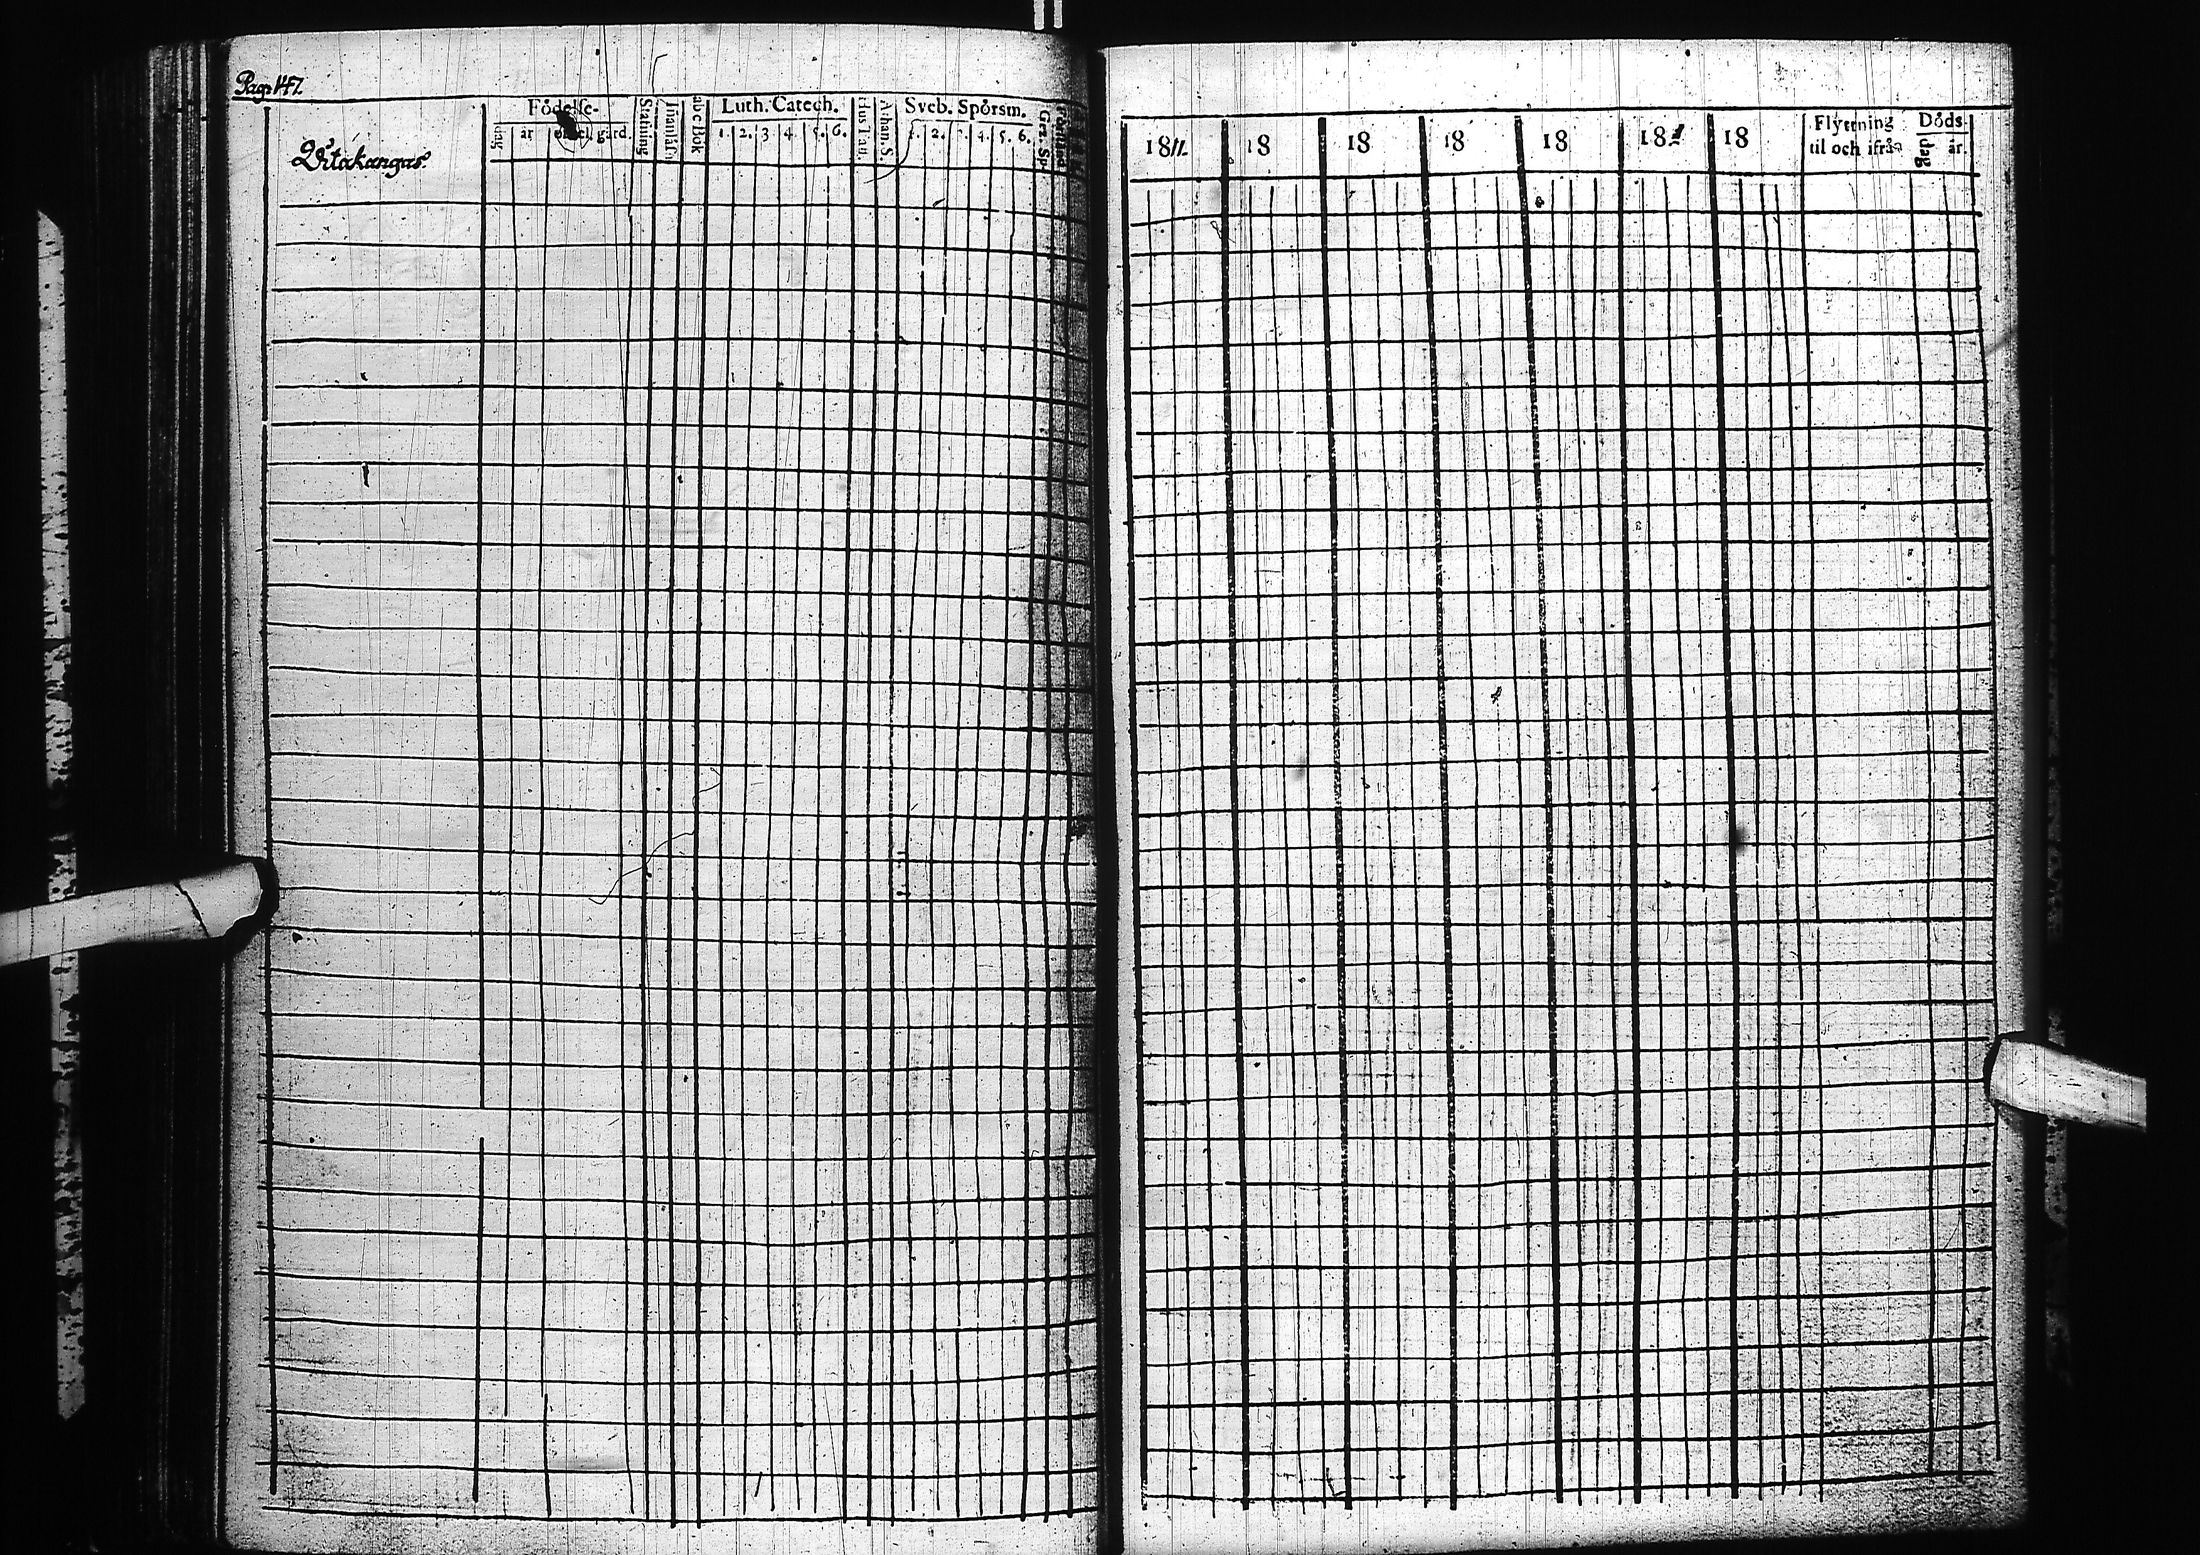 Pag. 147.
Witakangas.
Födelse-
dag år och el. gård.
Statning
Innanläsn
abc Bok
Luth. Catech.
1. 2. 3 4 5. 6.
Hus Tafl.
Athan. S.
Sveb. Spörsm.
1. 2. 3. 4. 5. 6.
Gez. Sp.
1811. 18 18 18 18 181 18
Flyttning
til och ifrån
Döds-
dag år.